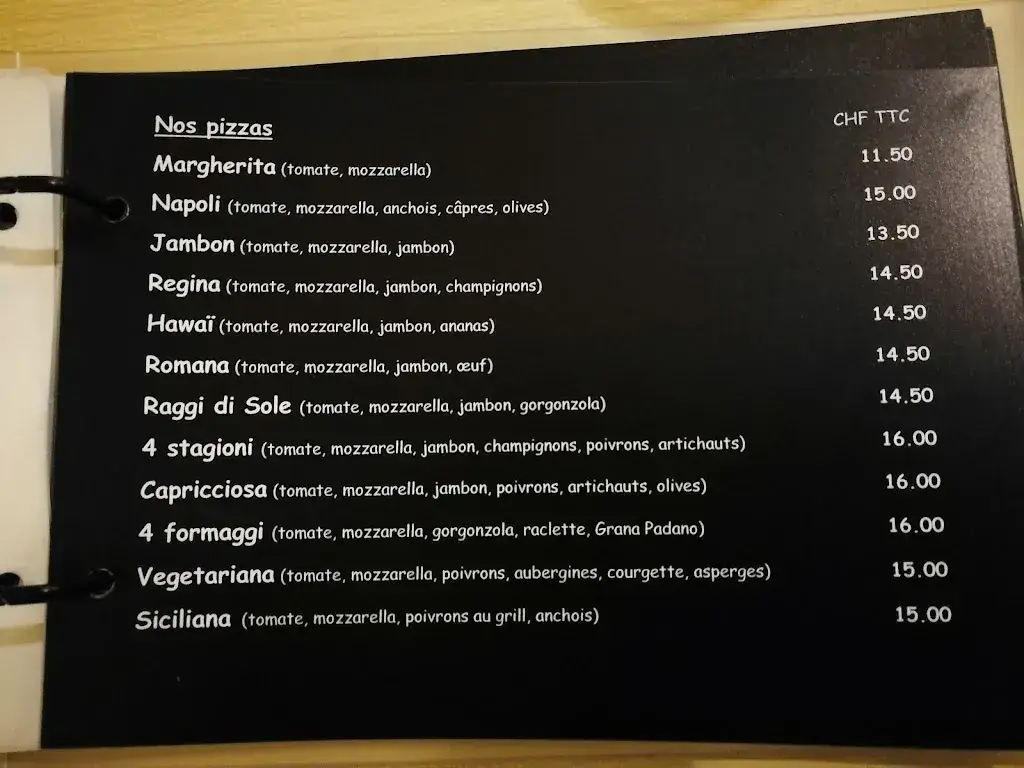 Nos pizzas CHF TTC
Margherita (tomate, mozzarella) 11.50
Napoli (tomate, mozzarella, anchois, câpres, olives) 15.00
Jambon (tomate, mozzarella, jambon) 13.50
Regina (tomate, mozzarella, jambon, champignons) 14.50
Hawaï (tomate, mozzarella, jambon, ananas) 14.50
Romana (tomate, mozzarella, jambon, œuf) 14.50
Raggi di Sole (tomate, mozzarella, jambon, gorgonzola) 14.50
4 stagioni (tomate, mozzarella, jambon, champignons, poivrons, artichauts) 16.00
Capricciosa (tomate, mozzarella, jambon, poivrons, artichauts, olives) 16.00
4 formaggi (tomate, mozzarella, gorgonzola, raclette, Grana Padano) 16.00
Vegetariana (tomate, mozzarella, poivrons, aubergines, courgette, asperges) 15.00
Siciliana (tomate, mozzarella, poivrons au grill, anchois) 15.00